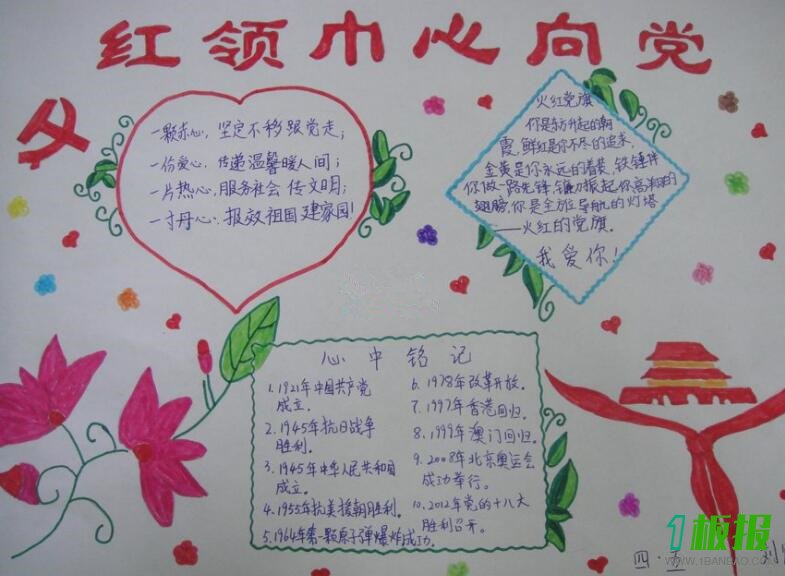 红领巾心向党
一颗赤心，坚定不移跟党走；
一份爱心，传递温馨暖人间；
一片热心，服务社会传文明；
一寸丹心，报效祖国建家园！
火红党旗
你是东方升起的朝
霞，鲜红是你不尽的追求，
金黄是你永远的着装，铁锤伴
你做一路先锋，镰刀振起你高翔的
翅膀，你是全方位导航的灯塔
——火红的党旗。
我爱你！
心中铭记
1.1921年中国共产党
成立。
2.1945年抗日战争
胜利。
3.1945年中华人民共和国
成立。
4.1955年抗美援朝胜利。
5.1964年第一颗原子弹爆炸成功。
6.1978年改革开放。
7.1997年香港回归。
8.1999年澳门回归。
9.2008年北京奥运会
成功举行。
10.2012年党的十八大
胜利召开。
四·五 刘
1板报
WWW.1BANBAO.COM